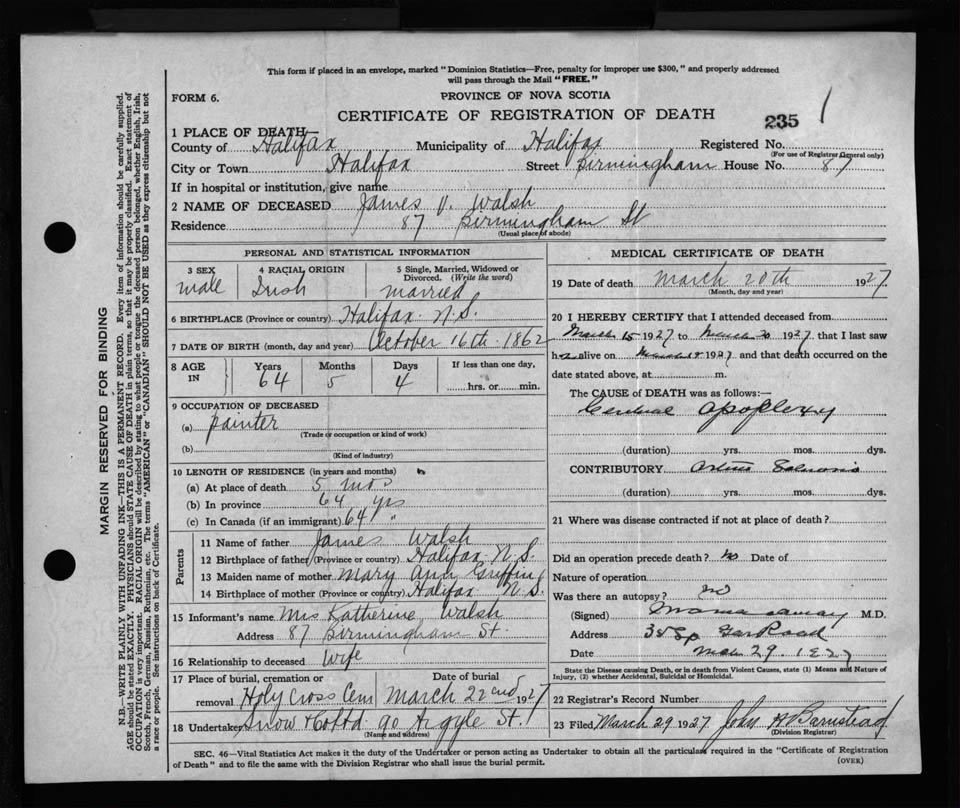 This form if placed in an envelope, marked "Dominion Statistics—Free, penalty for improper use $300," and properly addressed
will pass through the Mail "FREE."
FORM 6.
PROVINCE OF NOVA SCOTIA
CERTIFICATE OF REGISTRATION OF DEATH
235
1
1 PLACE OF DEATH—
County of Halifax Municipality of Halifax Registered No.
(For use of Registrar General only)
City or Town Halifax Street Birmingham House No. 87
If in hospital or institution, give name
2 NAME OF DECEASED James V. Walsh
Residence 87 Birmingham St
(Usual place of abode)
PERSONAL AND STATISTICAL INFORMATION
3 SEX male
4 RACIAL ORIGIN Irish
5 Single, Married, Widowed or
Divorced. (Write the word)
married
6 BIRTHPLACE (Province or country) Halifax N.S.
7 DATE OF BIRTH (month, day and year) October 16th 1862
8 AGE IN
Years 64
Months 5
Days 4
If less than one day,
hrs. or min.
9 OCCUPATION OF DECEASED
(a) painter
(Trade or occupation or kind of work)
(b)
(Kind of industry)
10 LENGTH OF RESIDENCE (in years and months)
(a) At place of death 5 mos
(b) In province 64 yrs
(c) In Canada (if an immigrant) 64 "
Parents
11 Name of father James Walsh
12 Birthplace of father (Province or country) Halifax N.S.
13 Maiden name of mother Mary Ann Griffin
14 Birthplace of mother (Province or country) Halifax N.S.
15 Informant's name Mrs Katherine Walsh
Address 87 Birmingham St.
16 Relationship to deceased Wife
17 Place of burial, cremation or
removal Holy Cross Cem
Date of burial
March 22nd 1927
18 Undertaker Snow & Co Ltd 90 Argyle St.
(Name and address)
MEDICAL CERTIFICATE OF DEATH
19 Date of death March 20th 1927
(Month, day and year)
20 I HEREBY CERTIFY that I attended deceased from
March 15 1927 to March 20 1927, that I last saw
h alive on 1927, and that death occurred on the
date stated above, at m.
The CAUSE of DEATH was as follows:—
Cerebral apoplexy
(duration) yrs. mos. dys.
CONTRIBUTORY
(duration) yrs. mos. dys.
21 Where was disease contracted if not at place of death?
Did an operation precede death? no Date of
Nature of operation
Was there an autopsy? no
(Signed) M.D.
Address
Date 29 1927
State the Disease causing Death, or in death from Violent Causes, state (1) Means and Nature of
Injury, (2) whether Accidental, Suicidal or Homicidal.
22 Registrar's Record Number
23 Filed March 29 1927 John A Barnstead
(Division Registrar)
SEC. 46—Vital Statistics Act makes it the duty of the Undertaker or person acting as Undertaker to obtain all the particulars required in the "Certificate of Registration
of Death" and to file the same with the Division Registrar who shall issue the burial permit.
(OVER)
MARGIN RESERVED FOR BINDING
N.B.—WRITE PLAINLY WITH UNFADING INK—THIS IS A PERMANENT RECORD. Every item of information should be carefully supplied.
AGE should be stated EXACTLY. PHYSICIANS should STATE CAUSE OF DEATH in plain terms, so that it may be properly classified. Exact statement of
OCCUPATION is very important. RACIAL ORIGIN will be described by stating to what people or tongue the deceased person belonged, whether English, Irish,
Scotch, French, German, Russian, Ruthenian, etc. The terms "AMERICAN" or "CANADIAN" SHOULD NOT BE USED as they express citizenship but not
a race or people. See instructions on back of Certificate.